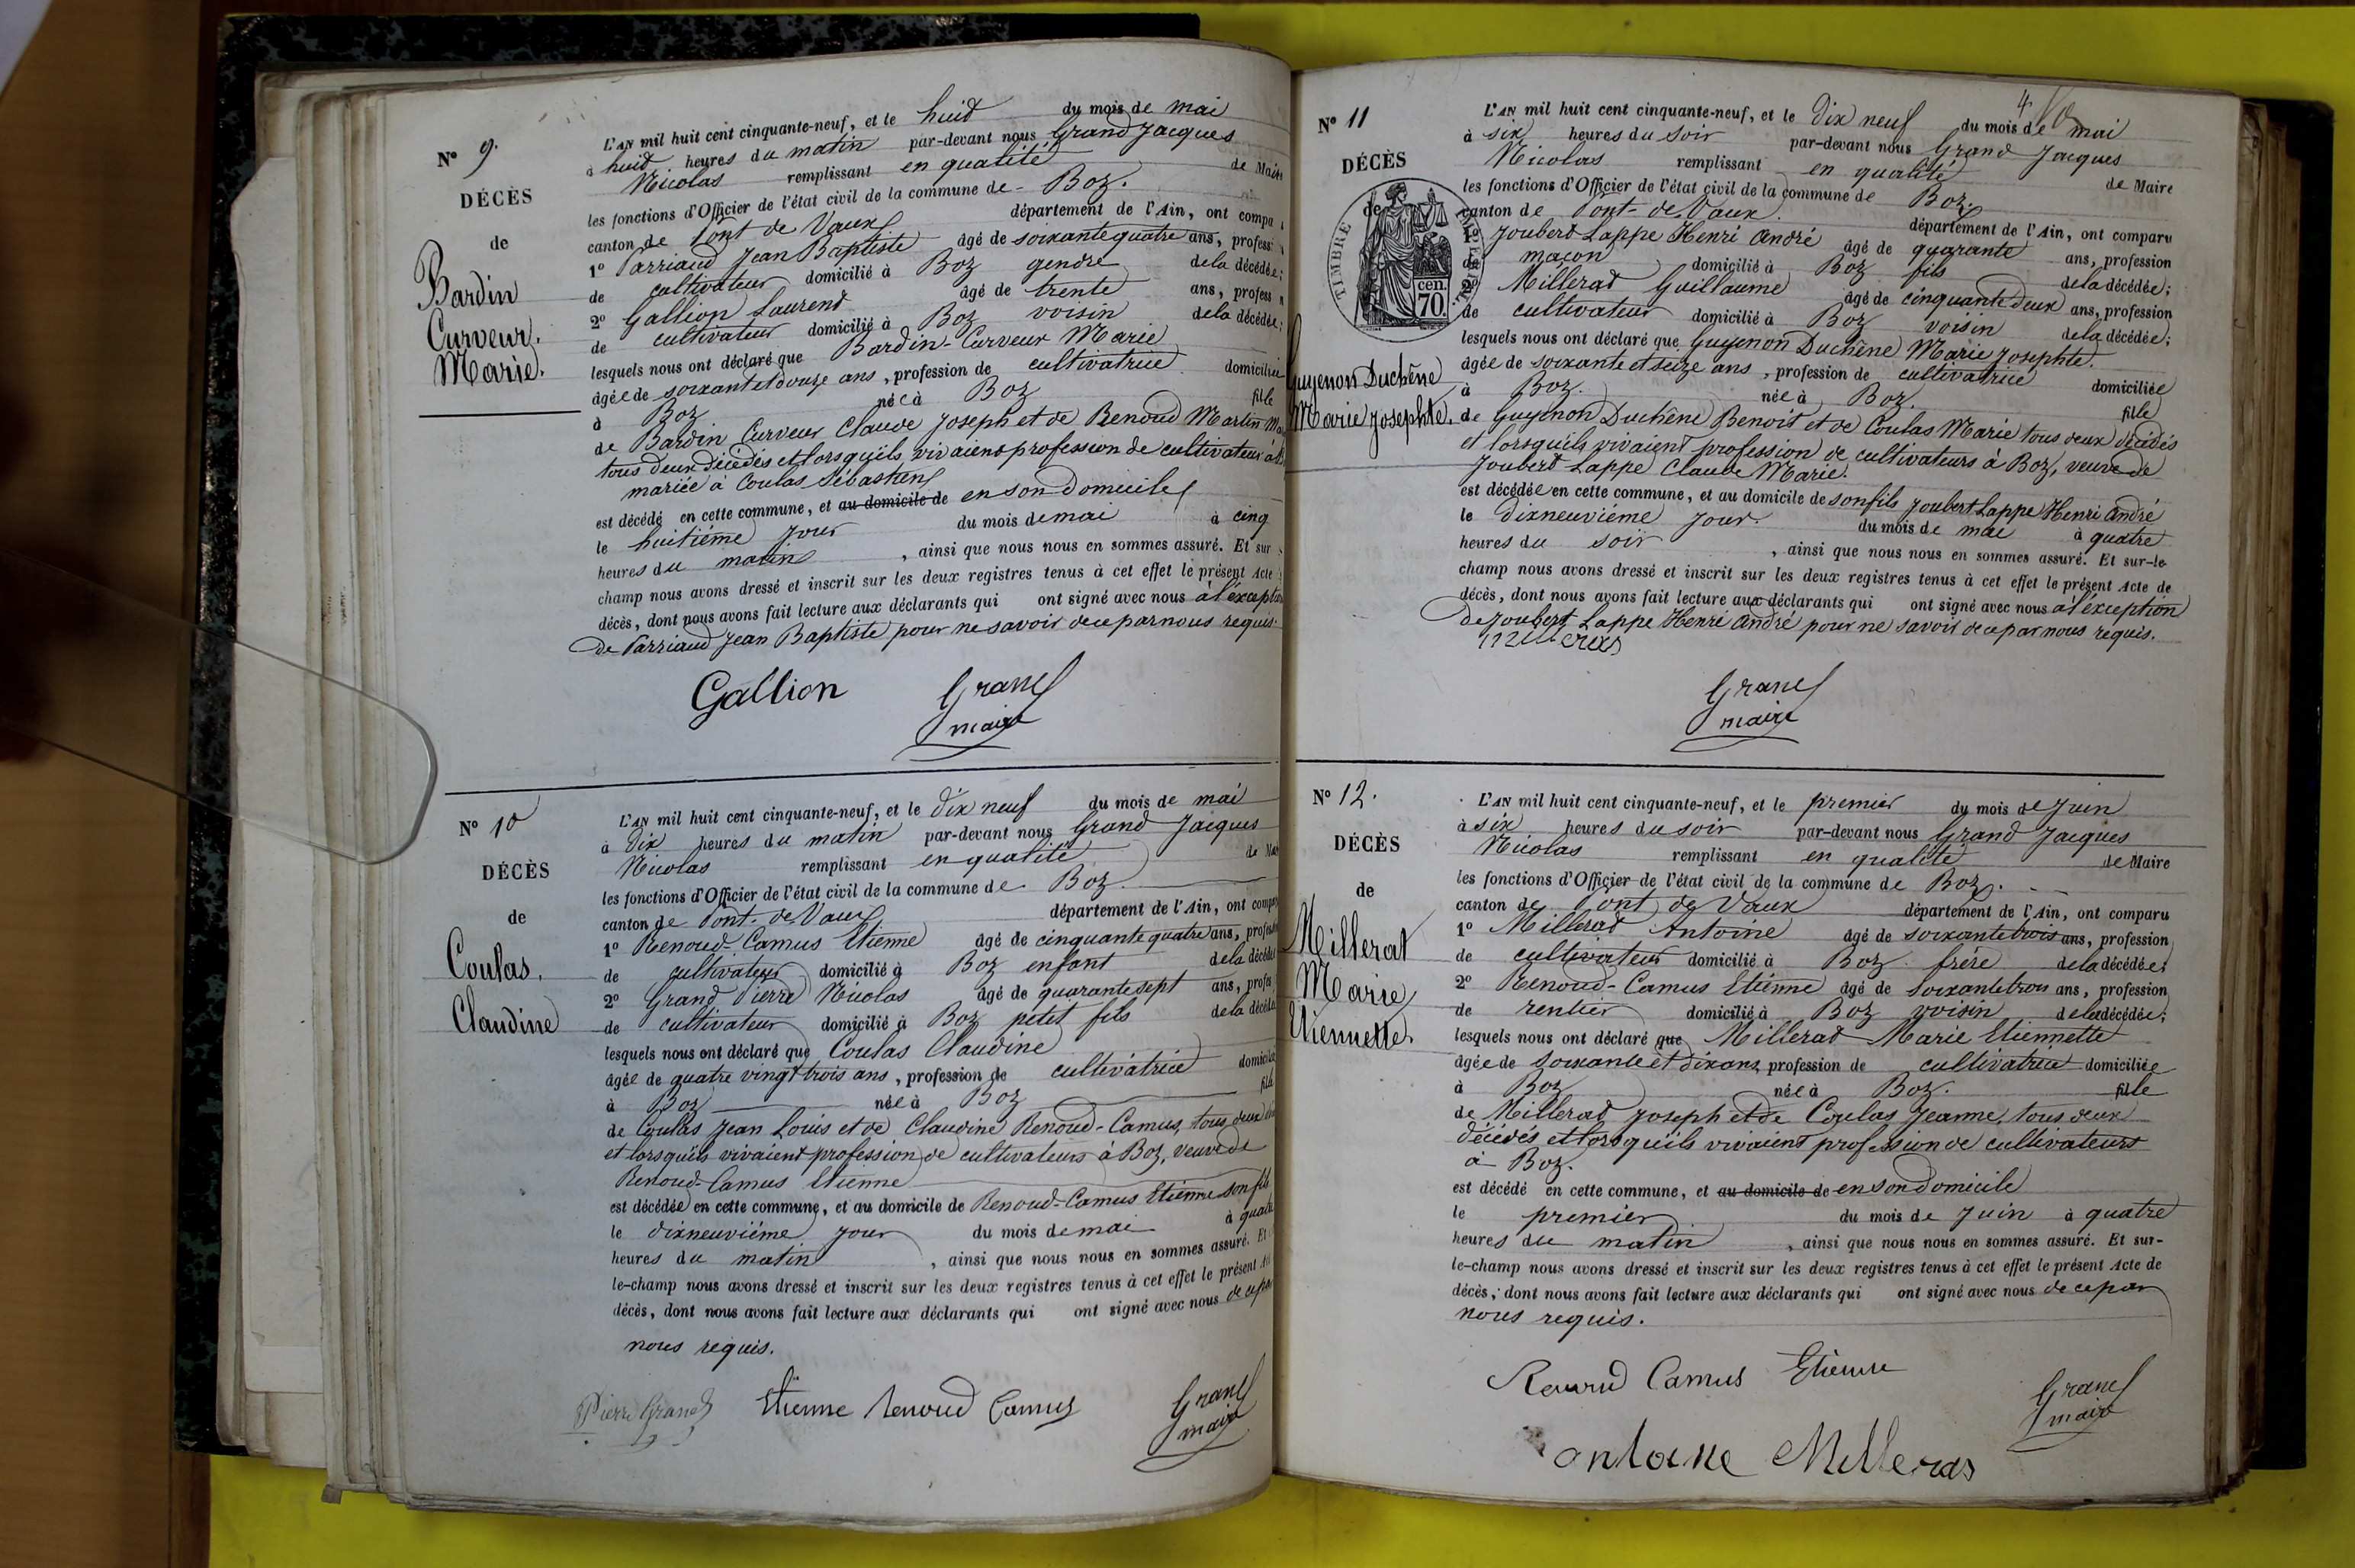 N° 9.
DÉCÈS
de
Bardin
Curveur.
Marie.
L'AN mil huit cent cinquante-neuf, et le huit du mois de mai
à huit heures du matin par-devant nous Grand Jacques
Nicolas remplissant en qualité de Maire
les fonctions d'Officier de l'état civil de la commune de Boz.
canton de Pont de Vaux département de l'Ain, ont compa
1° Parriaud Jean Baptiste âgé de soixante quatre ans, profess
de cultivateur domicilié à Boz gendre de la décédée;
2° Gallion Laurent âgé de trente ans, profess
de cultivateur domicilié à Boz voisin de la décédée;
lesquels nous ont déclaré que Bardin-Curveur Marie
âgée de soixante et douze ans, profession de cultivatrice domiciliée
à Boz née à Boz fille
de Bardin Curveur Claude Joseph et de Renoud Martin
tous deux décédés et lorsqu'ils vivaient profession de cultivateur à
mariée à Coulas Sébastien
est décédé en cette commune, et au domicile de en son domicile
le huitième jour du mois de mai à cinq
heures du matin, ainsi que nous nous en sommes assuré. Et sur
champ nous avons dressé et inscrit sur les deux registres tenus à cet effet le présent Acte
décès, dont nous avons fait lecture aux déclarants qui ont signé avec nous à l'exception
de Parriaud Jean Baptiste pour ne savoir de ce par nous requis.
Gallion Grand
maire
N° 10
DÉCÈS
de
Coulas.
Claudine
L'AN mil huit cent cinquante-neuf, et le dix neuf du mois de mai
à dix heures du matin par-devant nous Grand Jacques
Nicolas remplissant en qualité de
les fonctions d'Officier de l'état civil de la commune de Boz
canton de Pont-de-Vaux département de l'Ain, ont
1° Renoud-Camus Etienne âgé de cinquante quatre ans,
de cultivateur domicilié à Boz enfant de la
2° Grand Pierre Nicolas âgé de quarante sept ans,
de cultivateur domicilié à Boz petit fils de la
lesquels nous ont déclaré que Coulas Claudine
âgée de quatre vingt trois ans, profession de cultivatrice
à Boz née à Boz fille
de Coulas Jean Louis et de Claudine Renoud-Camus, tous deux
et lorsqu'ils vivaient profession de cultivateurs à Boz, veuve de
Renoud-Camus Etienne
est décédée en cette commune, et au domicile de Renoud-Camus Etienne son fils
le dixneuvième jour du mois de mai à quatre
heures du matin, ainsi que nous nous en sommes assuré. Et
le-champ nous avons dressé et inscrit sur les deux registres tenus à cet effet le présent
décès, dont nous avons fait lecture aux déclarants qui ont signé avec nous de ce par
nous requis.
Pierre Grand Etienne Renoud Camus Grand
maire
4
N° 11
DÉCÈS
de
TIMBRE
cen.
70.
Guyenon Duchêne
Marie Josephte.
L'AN mil huit cent cinquante-neuf, et le dix neuf du mois de mai
à six heures du soir par-devant nous Grand Jacques
Nicolas remplissant en qualité de Maire
les fonctions d'Officier de l'état civil de la commune de Boz.
canton de Pont-de-Vaux. département de l'Ain, ont comparu
1° Joubert Lappe Henri André âgé de quarante ans, profession
de maçon domicilié à Boz fils de la décédée;
2° Millerat Guillaume âgé de cinquante deux ans, profession
de cultivateur domicilié à Boz voisin de la décédée;
lesquels nous ont déclaré que Guyenon Duchêne Marie Josephte.
âgée de soixante et seize ans, profession de cultivatrice domiciliée
à Boz. née à Boz. fille
de Guyenon Duchêne Benoît et de Coulas Marie tous deux décédés
et lorsqu'ils vivaient profession de cultivateurs à Boz, veuve de
Joubert Lappe Claude Marie.
est décédée en cette commune, et au domicile de son fils Joubert Lappe Henri André
le dixneuvième jour. du mois de mai à quatre
heures du soir, ainsi que nous nous en sommes assuré. Et sur-le-
champ nous avons dressé et inscrit sur les deux registres tenus à cet effet le présent Acte de
décès, dont nous avons fait lecture aux déclarants qui ont signé avec nous à l'éxception
de Joubert Lappe Henri André pour ne savoir de ce par nous requis.
Grand
maire
N° 12.
DÉCÈS
de
Millerat
Marie
Etiennette.
L'AN mil huit cent cinquante-neuf, et le premier du mois de Juin
à six heures du soir par-devant nous Grand Jacques
Nicolas remplissant en qualité de Maire
les fonctions d'Officier de l'état civil de la commune de Boz.
canton de Pont de Vaux département de l'Ain, ont comparu
1° Millerat Antoine âgé de soixante trois ans, profession
de cultivateur domicilié à Boz frère de la décédée;
2° Renoud-Camus Etienne âgé de soixante trois ans, profession
de rentier domicilié à Boz voisin de la décédée;
lesquels nous ont déclaré que Millerat Marie Etiennette
âgée de soixante et dix ans, profession de cultivatrice domiciliée
à Boz née à Boz. fille
de Millerat Joseph et de Coulas Jeanne, tous deux
décédés et lorsqu'ils vivaient profession de cultivateurs
à Boz.
est décédé en cette commune, et au domicile de en son domicile
le premier du mois de Juin à quatre
heures du matin, ainsi que nous nous en sommes assuré. Et sur-
le-champ nous avons dressé et inscrit sur les deux registres tenus à cet effet le présent Acte de
décès, dont nous avons fait lecture aux déclarants qui ont signé avec nous de ce par
nous requis.
Renoud Camus Etienne Grand
maire
antoine Millerat